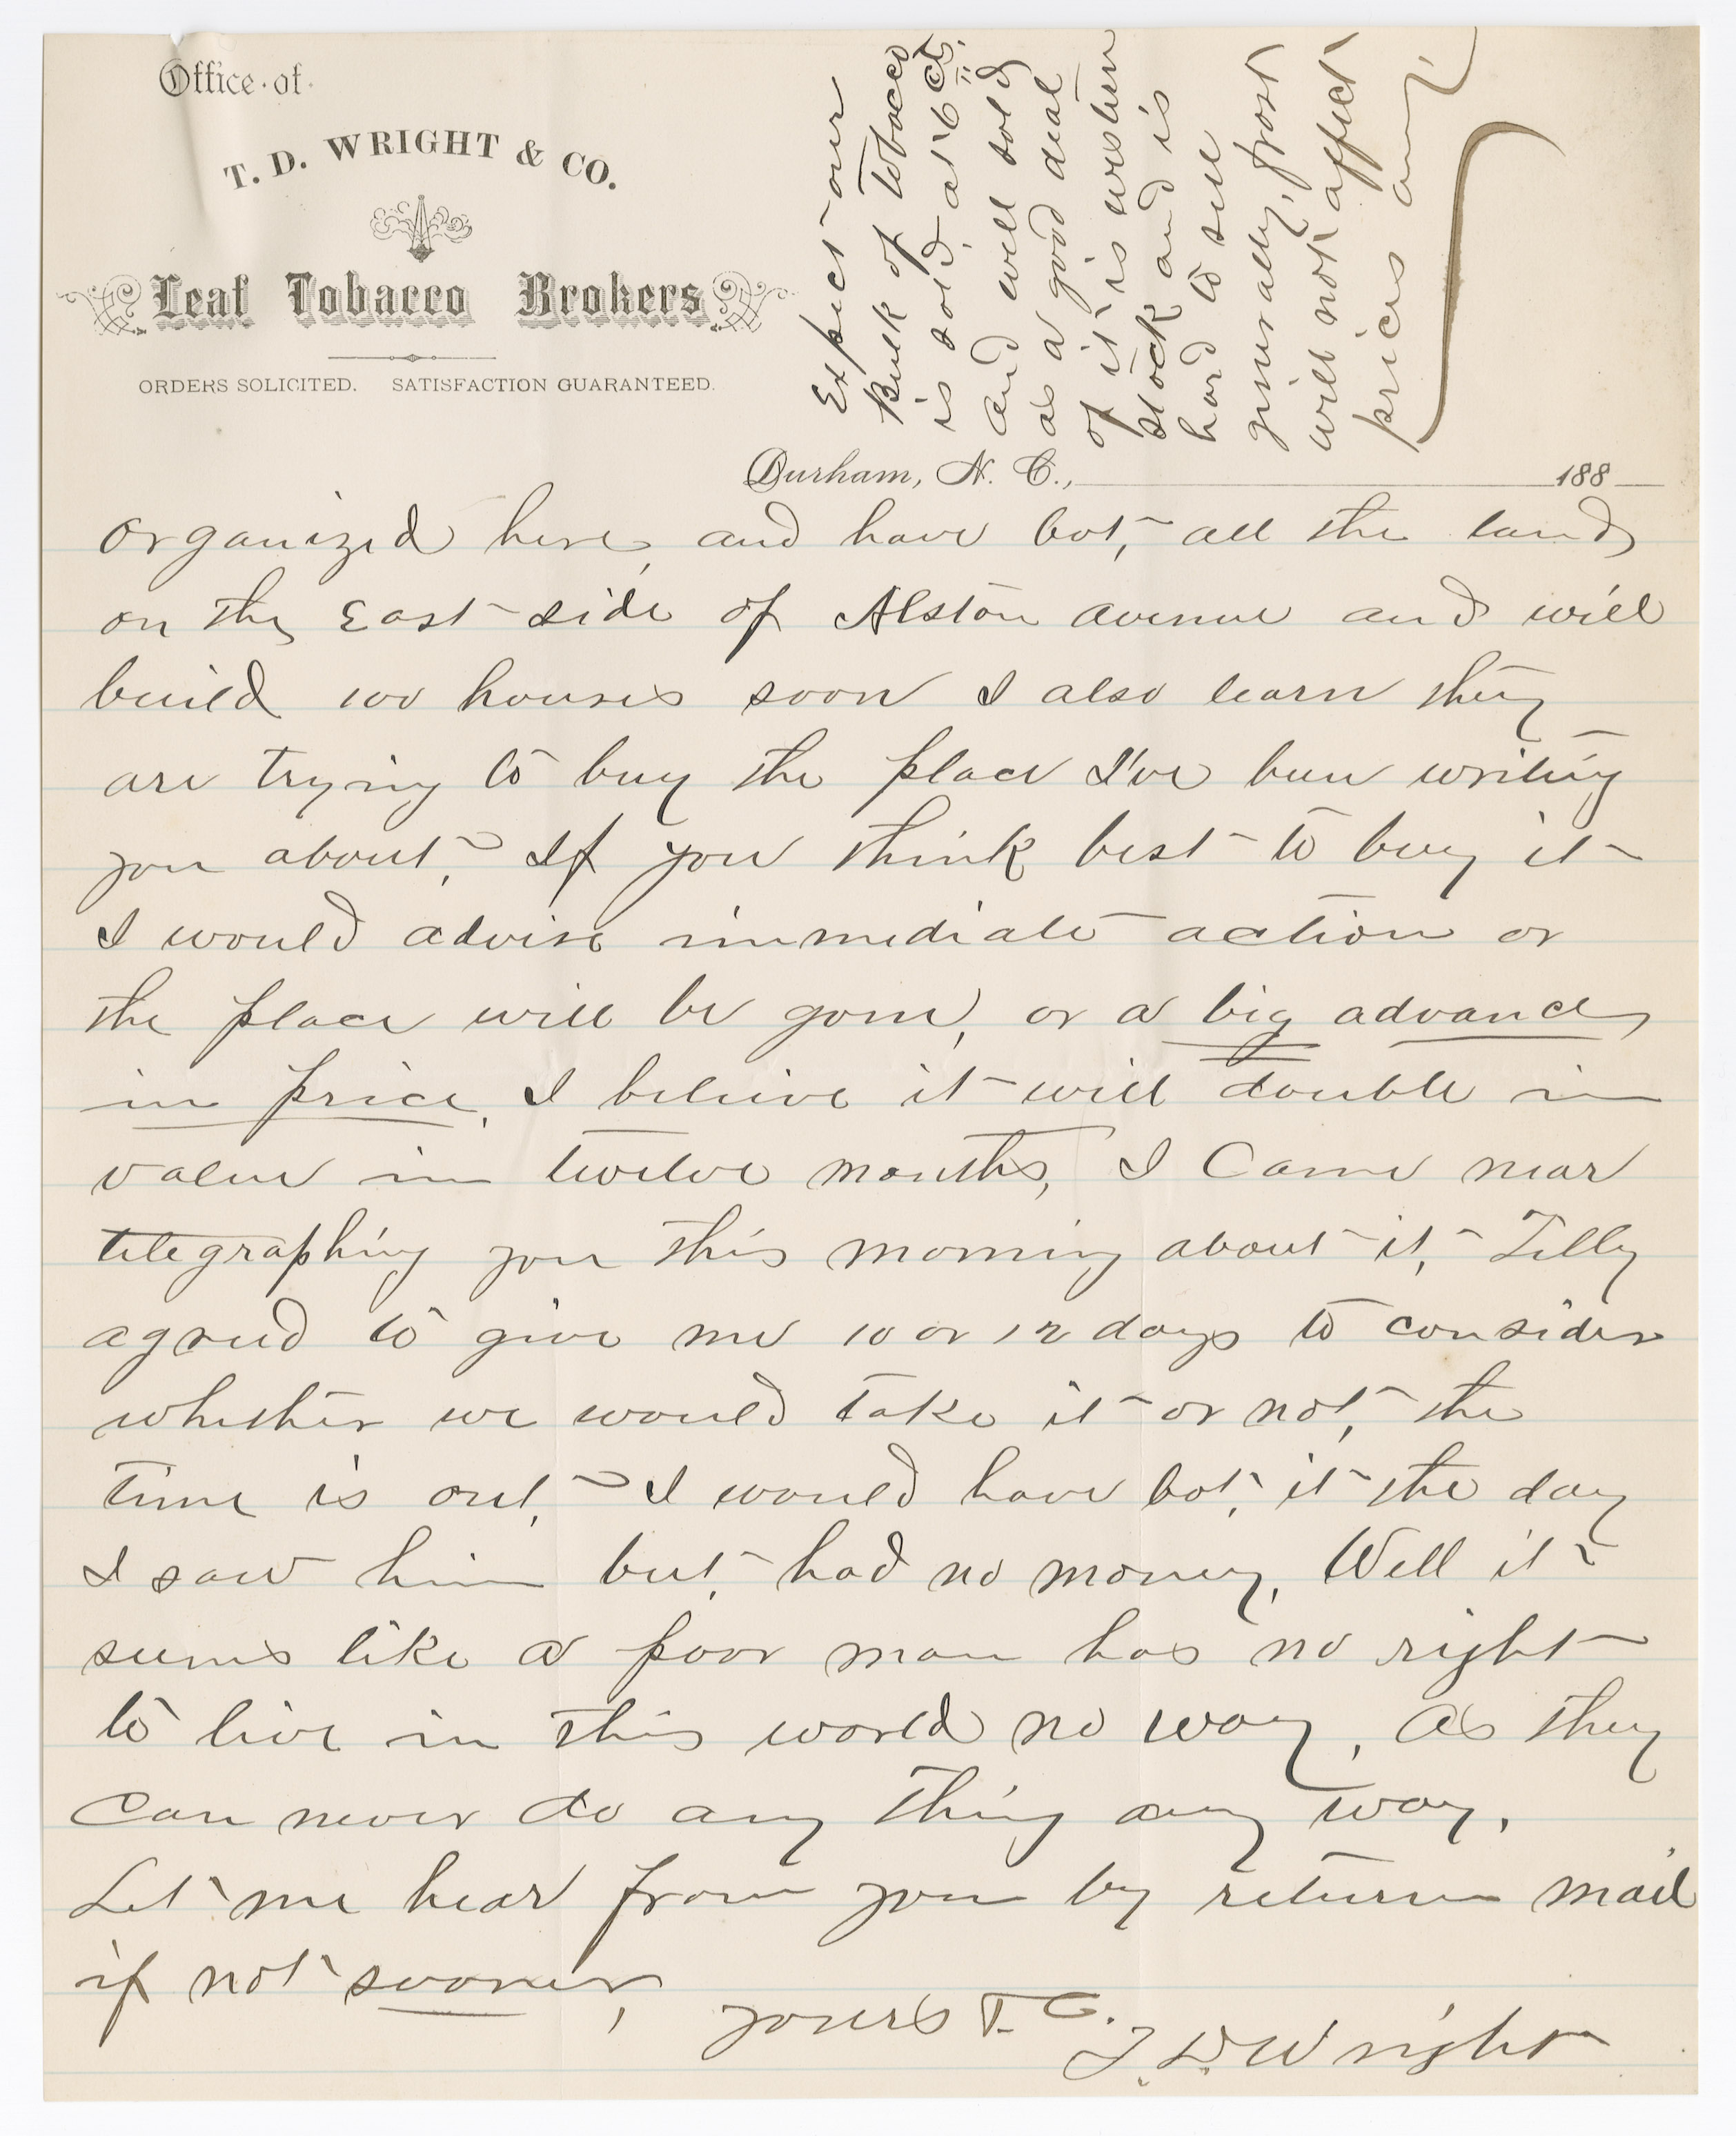 Office of
T. D. WRIGHT & CO.
Leaf Tobacco Brokers
ORDERS SOLICITED. SATISFACTION GUARANTEED.
Expect our
Bulk of Tobacco
is sold, at 6 cts.
and will sold
as a good deal
of it is western
stock and is
hard to sell
generally, frost
will not affect
prices any,
Durham, N. C., 188
organized here, and have bot, all the land,
on the East side of Alston avenue and will
build 100 houses soon I also learn they
are trying to buy the place I've been writing
you about, If you think best to buy it
I would advise immediate action or
the place will be gone, or a big advance,
in price, I believe it will double in
value in twelve months, I Came near
telegraphing you this morning about it, Tilly
agreed to give me 10 or 12 days to consider
whether we would take it or not, the
time is out, I would have bot, it the day
I saw him but, had no money, Well it
seems like a poor man has no right
to live in this world no way, as they
Can never do any thing any way.
Let me hear from you by return mail
if not sooner,
yours T. C.
T. D. Wright